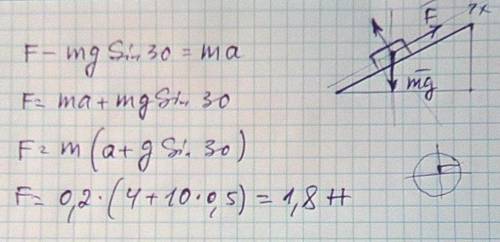 F - mg Sin 30 = ma
F = ma + mg Sin 30
F = m (a + g Sin 30)
F = 0,2 · (4 + 10 · 0,5) = 1,8 Н
F
x
mg